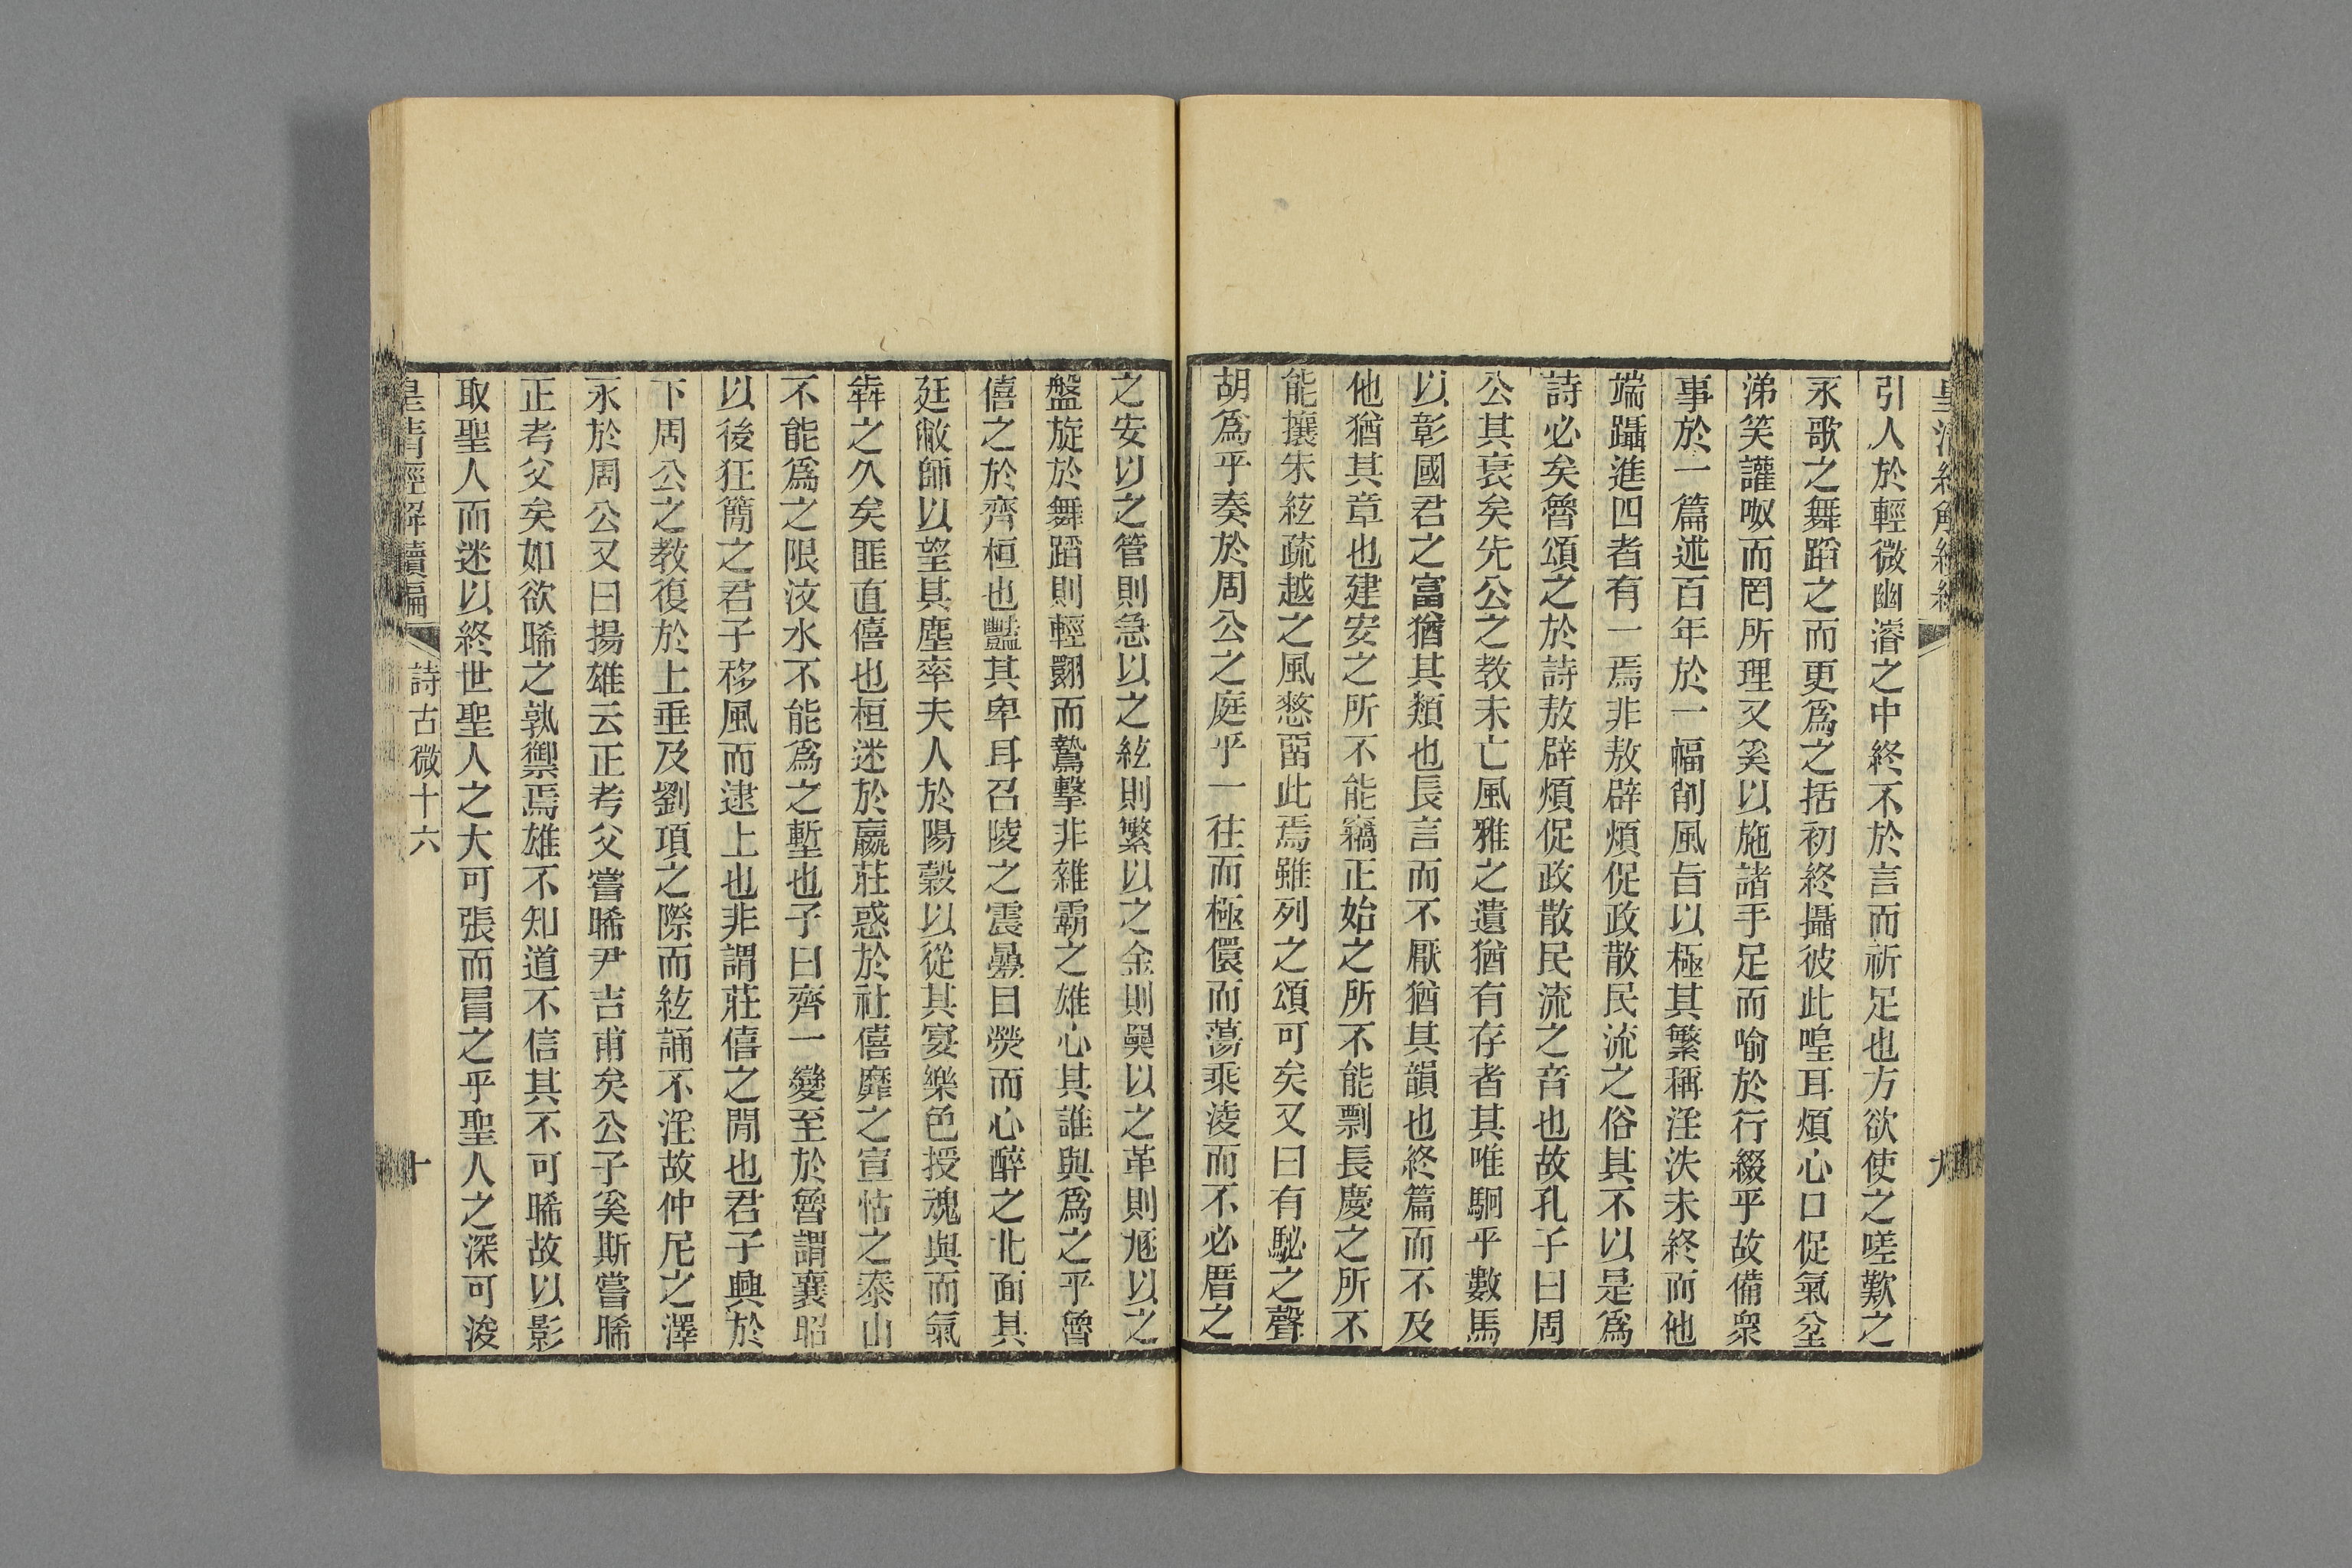 引人於輕微幽濬之中終不於言而祈足也方欲使之嗟歎之
永歌之舞蹈之而更爲之括初終攝彼此喤耳煩心口促氣坌
涕笑讙呶而罔所理又奚以施諸手足而喻於行綴乎故備衆
事於一篇述百年於一幅削風旨以極其繁稱淫泆未終而他
端躡進四者有一焉非敖辟煩促政散民流之俗其不以是爲
詩必矣魯頌之於詩敖辟煩促政散民流之音也故孔子曰周
公其衰矣先公之教未亡風雅之遺猶有存者其唯駉乎數馬
以彰國君之富猶其類也長言而不厭猶其韻也終篇而不及
他猶其章也建安之所不能竊正始之所不能剽長慶之所不
能攘朱絃疏越之風憗畱此焉雖列之頌可矣又曰有駜之聲
胡爲乎奏於周公之庭乎一往而極儇而蕩乘淩而不必厝之
之安以之管則急以之絃則繁以之金則㚖以之革則尰以之
盤旋於舞蹈則輕翾而鷙擊非雜霸之雄心其誰與爲之乎魯
僖之於齊桓也豔其卑耳召陵之震曓目熒而心醉之北面其
廷敝師以望其塵率夫人於陽穀以從其宴樂色授魂與而氣
犇之久矣匪直僖也桓迷於嬴莊惑於社僖靡之宣怙之泰山
不能爲之限汶水不能爲之塹也子曰齊一變至於魯謂襄昭
以後狂簡之君子移風而逮上也非謂莊僖之閒也君子興於
下周公之教復於上垂及劉項之際而絃誦不淫故仲尼之澤
永於周公又曰揚雄云正考父嘗睎尹吉甫矣公子奚斯嘗睎
正考父矣如欲睎之孰禦焉雄不知道不信其不可睎故以影
取聖人而迷以終世聖人之大可張而冒之乎聖人之深可浚
皇清經解續編
詩古微十六
十